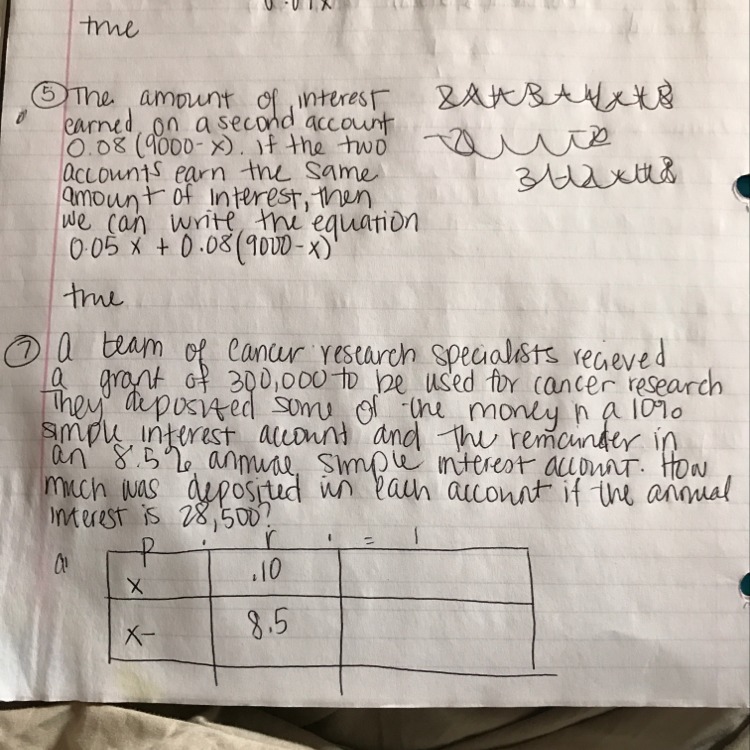 true
⑤ The amount of interest
earned on a second account
0.08 (9000-x). If the two
accounts earn the same
amount of interest, then
we can write the equation
0.05 x + 0.08(9000-x)
true
⑦ a team of cancer research specialists recieved
a grant of 300,000 to be used for cancer research
They deposited some of the money n a 10%
simple interest account and the remainder in
an 8.5% annual simple interest account. How
much was deposited in each account if the annual
interest is 28,500?
P . r . = I
a
x .10
x- 8.5